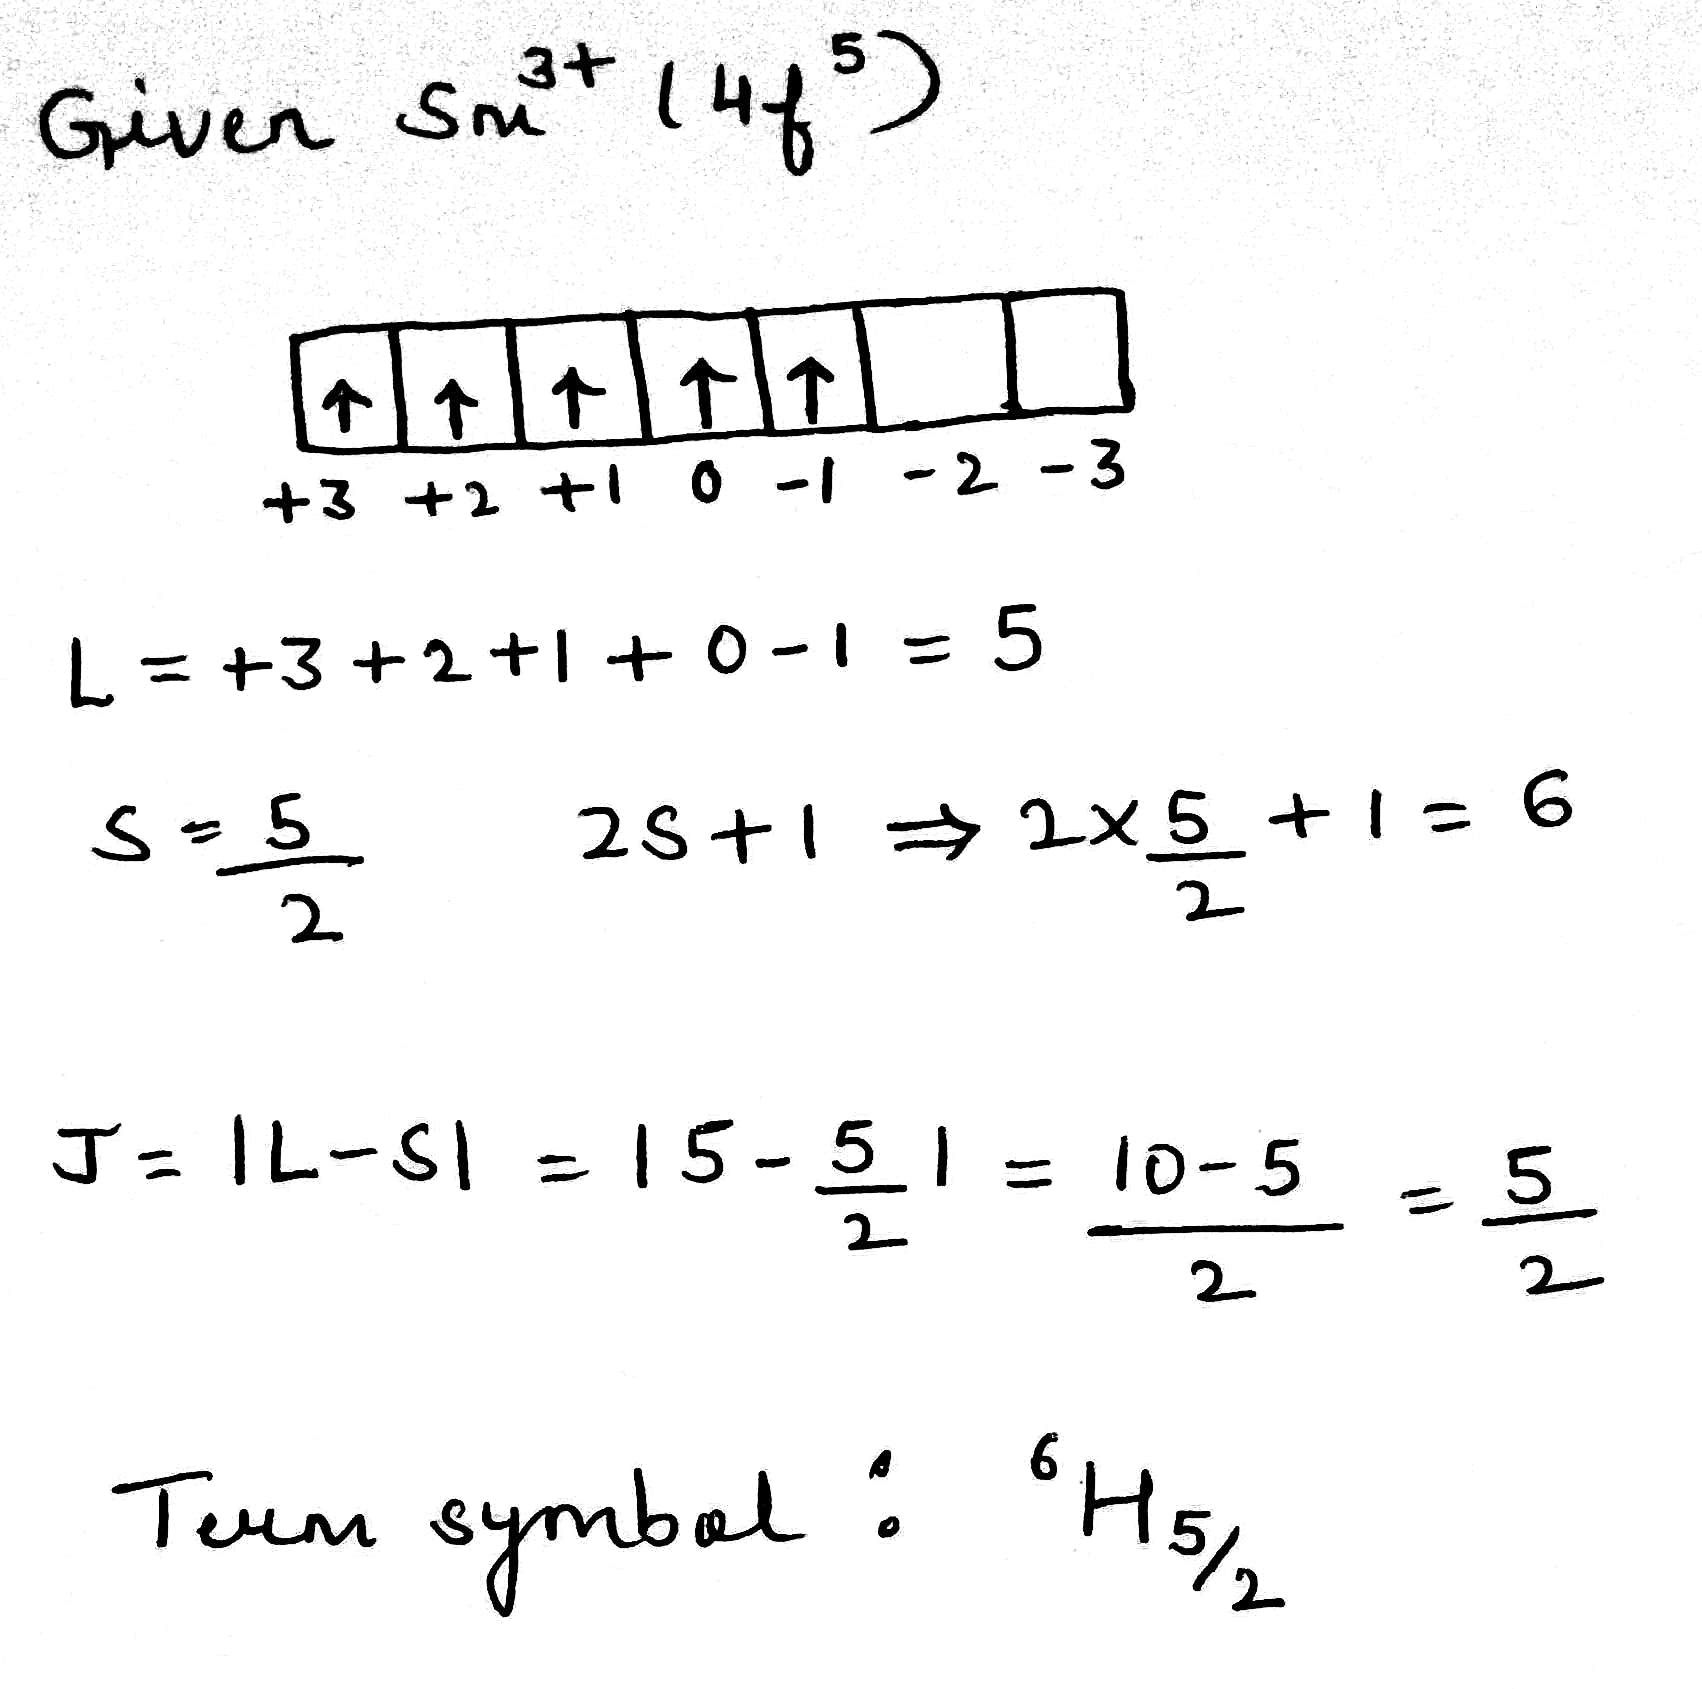 Given Sm³⁺ (4f⁵)
↑ ↑ ↑ ↑ ↑
+3 +2 +1 0 -1 -2 -3
L = +3 + 2 + 1 + 0 - 1 = 5
S = 5/2 2S + 1 ⇒ 2 × 5/2 + 1 = 6
J = |L - S| = |5 - 5/2| = (10 - 5)/2 = 5/2
Term symbol : ⁶H₅/₂